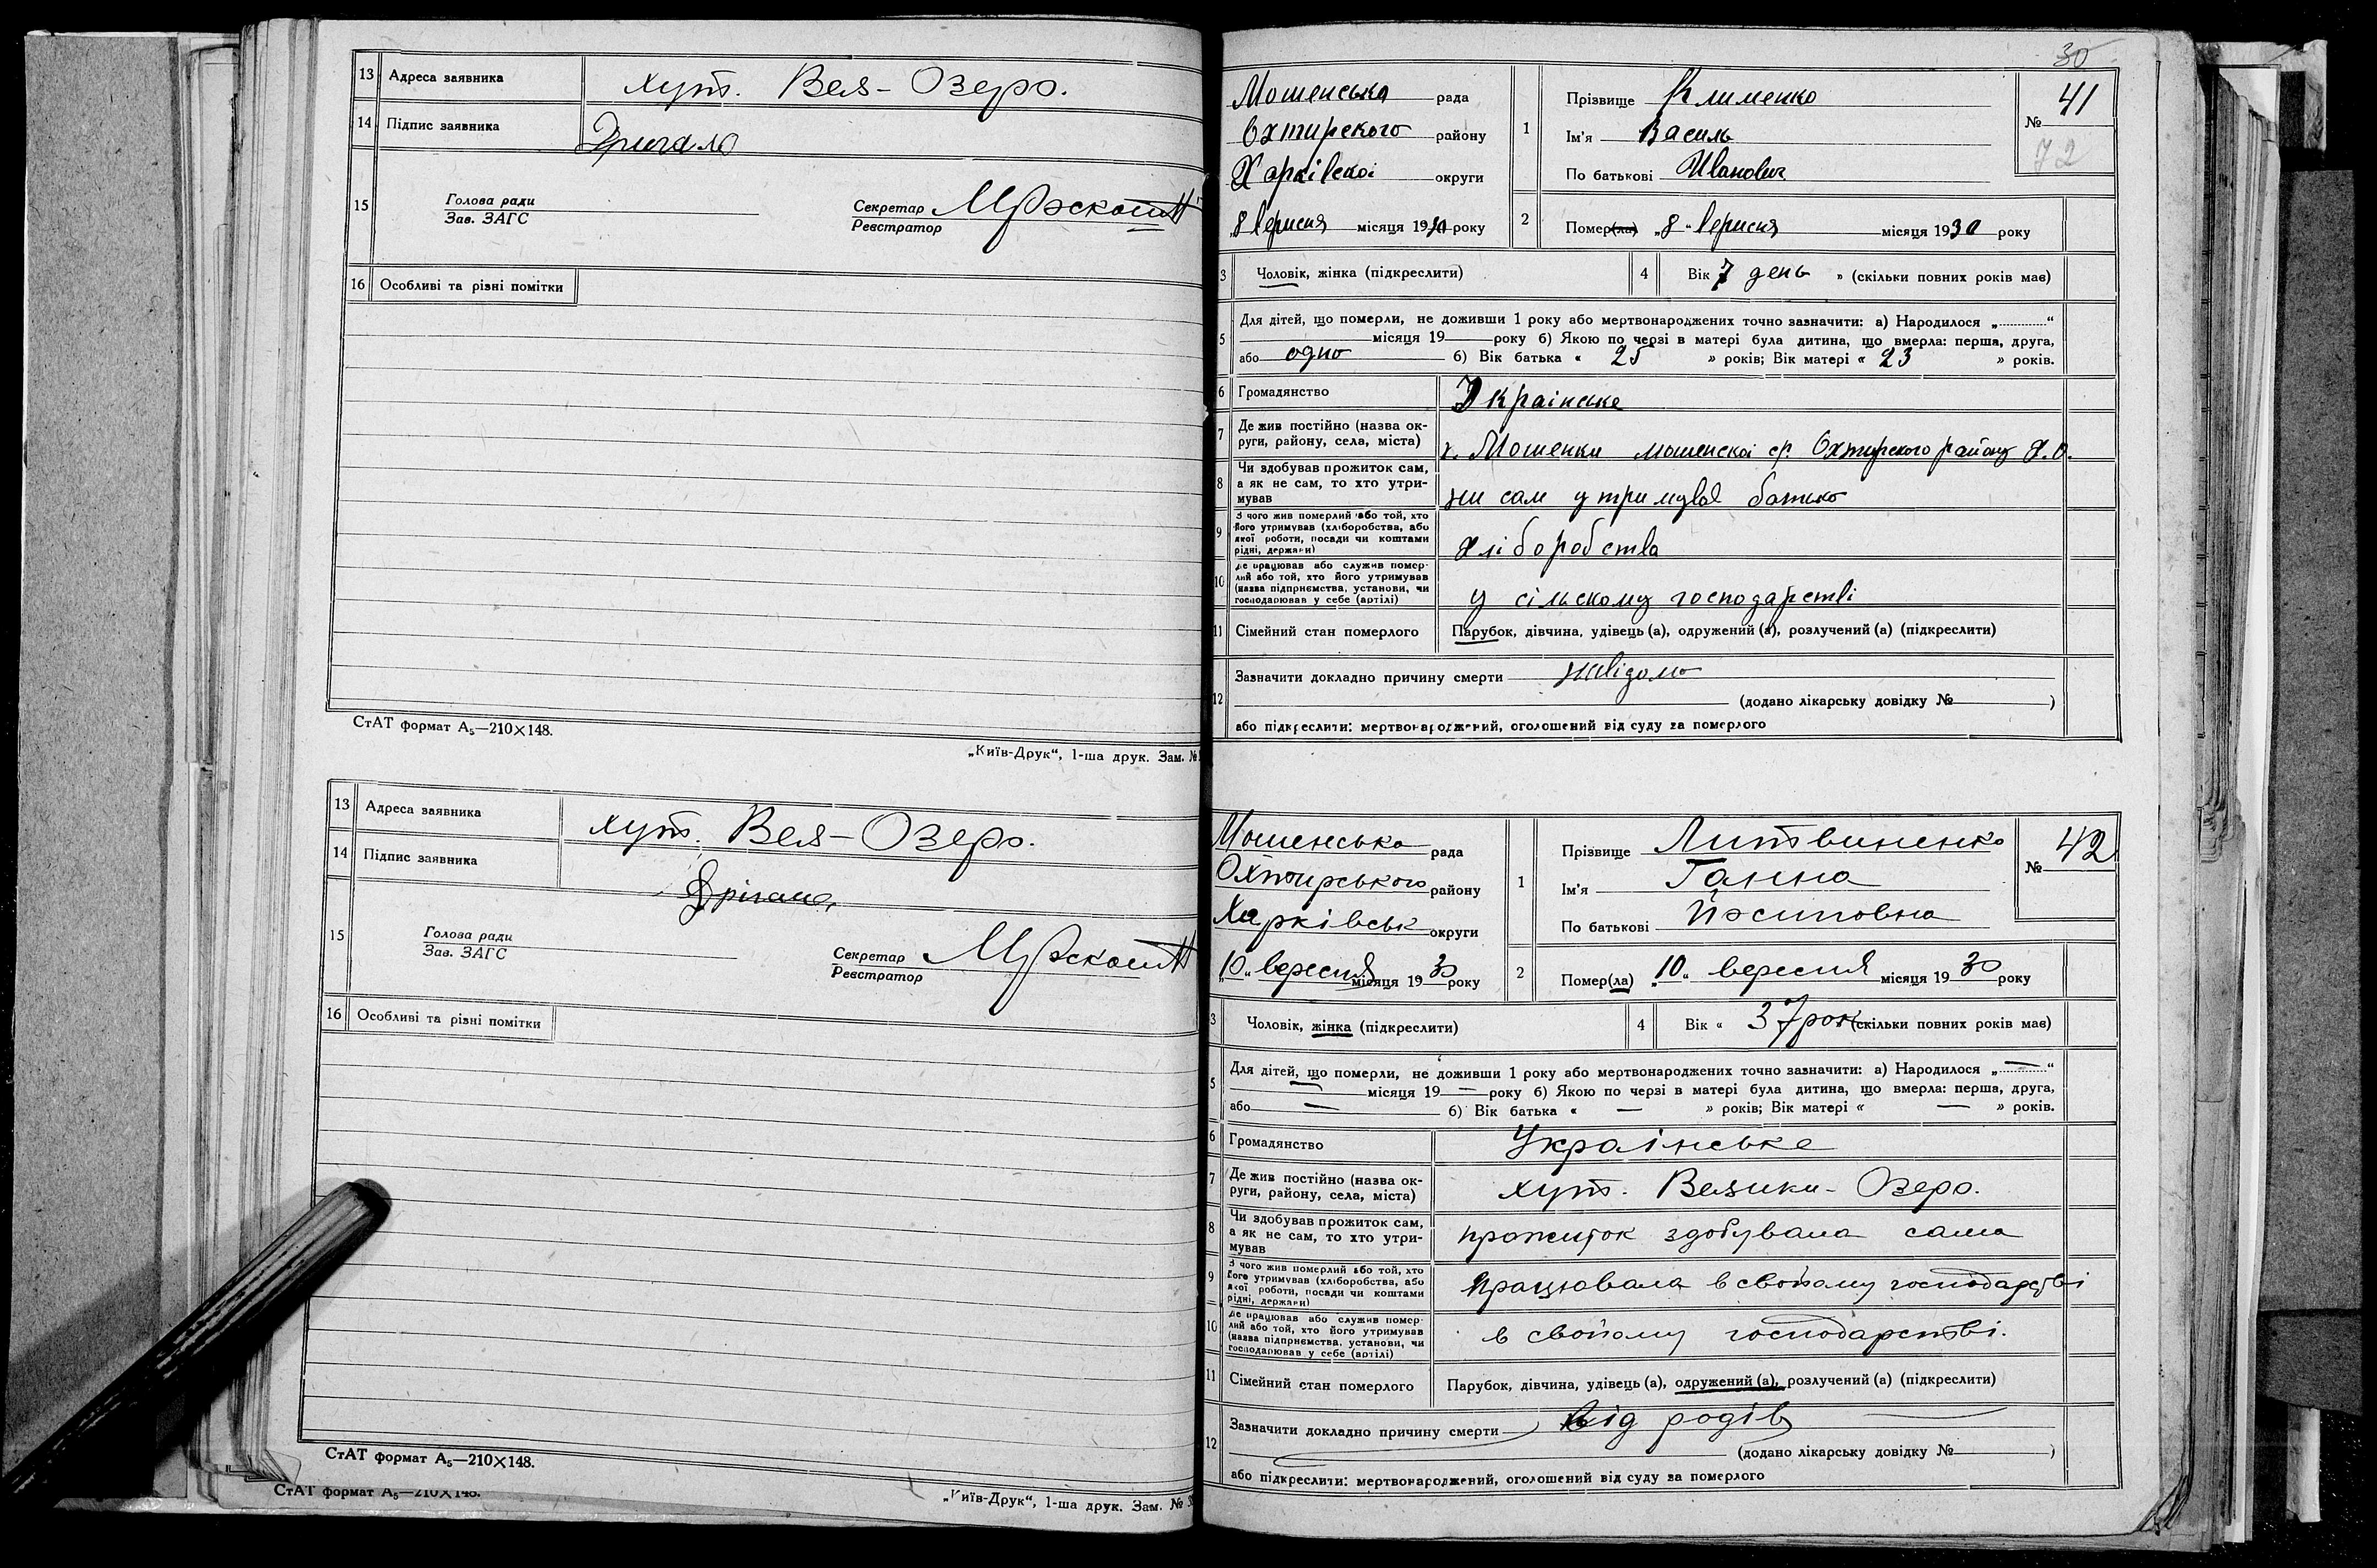 13 Адреса заявника хут. Вел-Озеро.
14 Підпис заявника
15 Голова ради
Зав. ЗАГС
Секретар
Реєстратор
16 Особливі та різні помітки
СтАТ формат А₅—210×148.
„Київ-Друк“, 1-ша друк. Зам. №
13 Адреса заявника хут. Вел-Озеро.
14 Підпис заявника
15 Голова ради
Зав. ЗАГС
Секретар
Реєстратор
16 Особливі та різні помітки
СтАТ формат А₅—210×148.
„Київ-Друк“, 1-ша друк. Зам. №
СтАТ формат А₅—210×148.
30
Мошенська рада
Охтирского району
Харківскоі округи
„8 вересня місяця 1930 року
1 Прізвище Клименко
Ім'я Василь
По батькові Иванович
№ 41
72
2 Помер(ла) „8“ вересня місяця 1930 року
3 Чоловік, жінка (підкреслити)
4 Вік 7 день » (скільки повних років має)
5 Для дітей, що померли, не доживши 1 року або мертвонароджених точно зазначити: а) Народилося „ “
місяця 19 року б) Якою по черзі в матері була дитина, що вмерла: перша, друга,
або одно б) Вік батька « 25 » років; Вік матері « 23 » років.
6 Громадянство Украінське
7 Де жив постійно (назва округи, району, села, міста) х. Мошенки мошенскоі ср. Охтирского району Х.О.
8 Чи здобував прожиток сам, а як не сам, то хто утримував ни сам утримував батько
9 З чого жив померлий або той, хто його утримував (хліборобства, або якої роботи, посади чи коштами рідні, держави) хліборобства
10 Де працював або служив померлий або той, хто його утримував (назва підприємства, установи, чи господарював у себе (артілі) у сільскому господарстві
11 Сімейний стан померлого Парубок, дівчина, удівець (а), одружений (а), розлучений (а) (підкреслити)
12 Зазначити докладно причину смерти невідомо
(додано лікарську довідку № )
або підкреслити: мертвонароджений, оголошений від суду за померлого
Мошенська рада
Охтирського району
Харківськ округи
„10“ вересня місяця 1930 року
1 Прізвище Литвиненко
Ім'я Ганна
По батькові Йосиповна
№ 42
2 Помер(ла) „10“ вересня місяця 1930 року
3 Чоловік, жінка (підкреслити)
4 Вік « 37 рок (скільки повних років має)
5 Для дітей, що померли, не доживши 1 року або мертвонароджених точно зазначити: а) Народилося „ — “
— місяця 19 — року б) Якою по черзі в матері була дитина, що вмерла: перша, друга,
або — б) Вік батька « — » років; Вік матері « — » років.
6 Громадянство Українське
7 Де жив постійно (назва округи, району, села, міста) хут. Велики-Озеро.
8 Чи здобував прожиток сам, а як не сам, то хто утримував прожиток здобувала сама
9 З чого жив померлий або той, хто його утримував (хліборобства, або якої роботи, посади чи коштами рідні, держави) працювала в свойому господарстві
10 Де працював або служив померлий або той, хто його утримував (назва підприємства, установи, чи господарював у себе (артілі) в свойому господарстві.
11 Сімейний стан померлого Парубок, дівчина, удівець (а), одружений (а), розлучений (а) (підкреслити)
12 Зазначити докладно причину смерти від родів
(додано лікарську довідку № )
або підкреслити: мертвонароджений, оголошений від суду за померлого